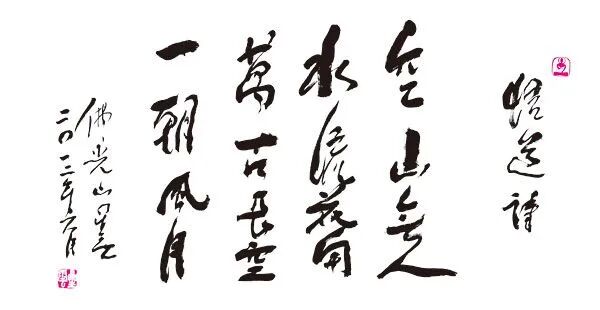 悟道詩
空山無人
水流花開
萬古長空
一朝風月
佛光山星雲
二〇一三年六月